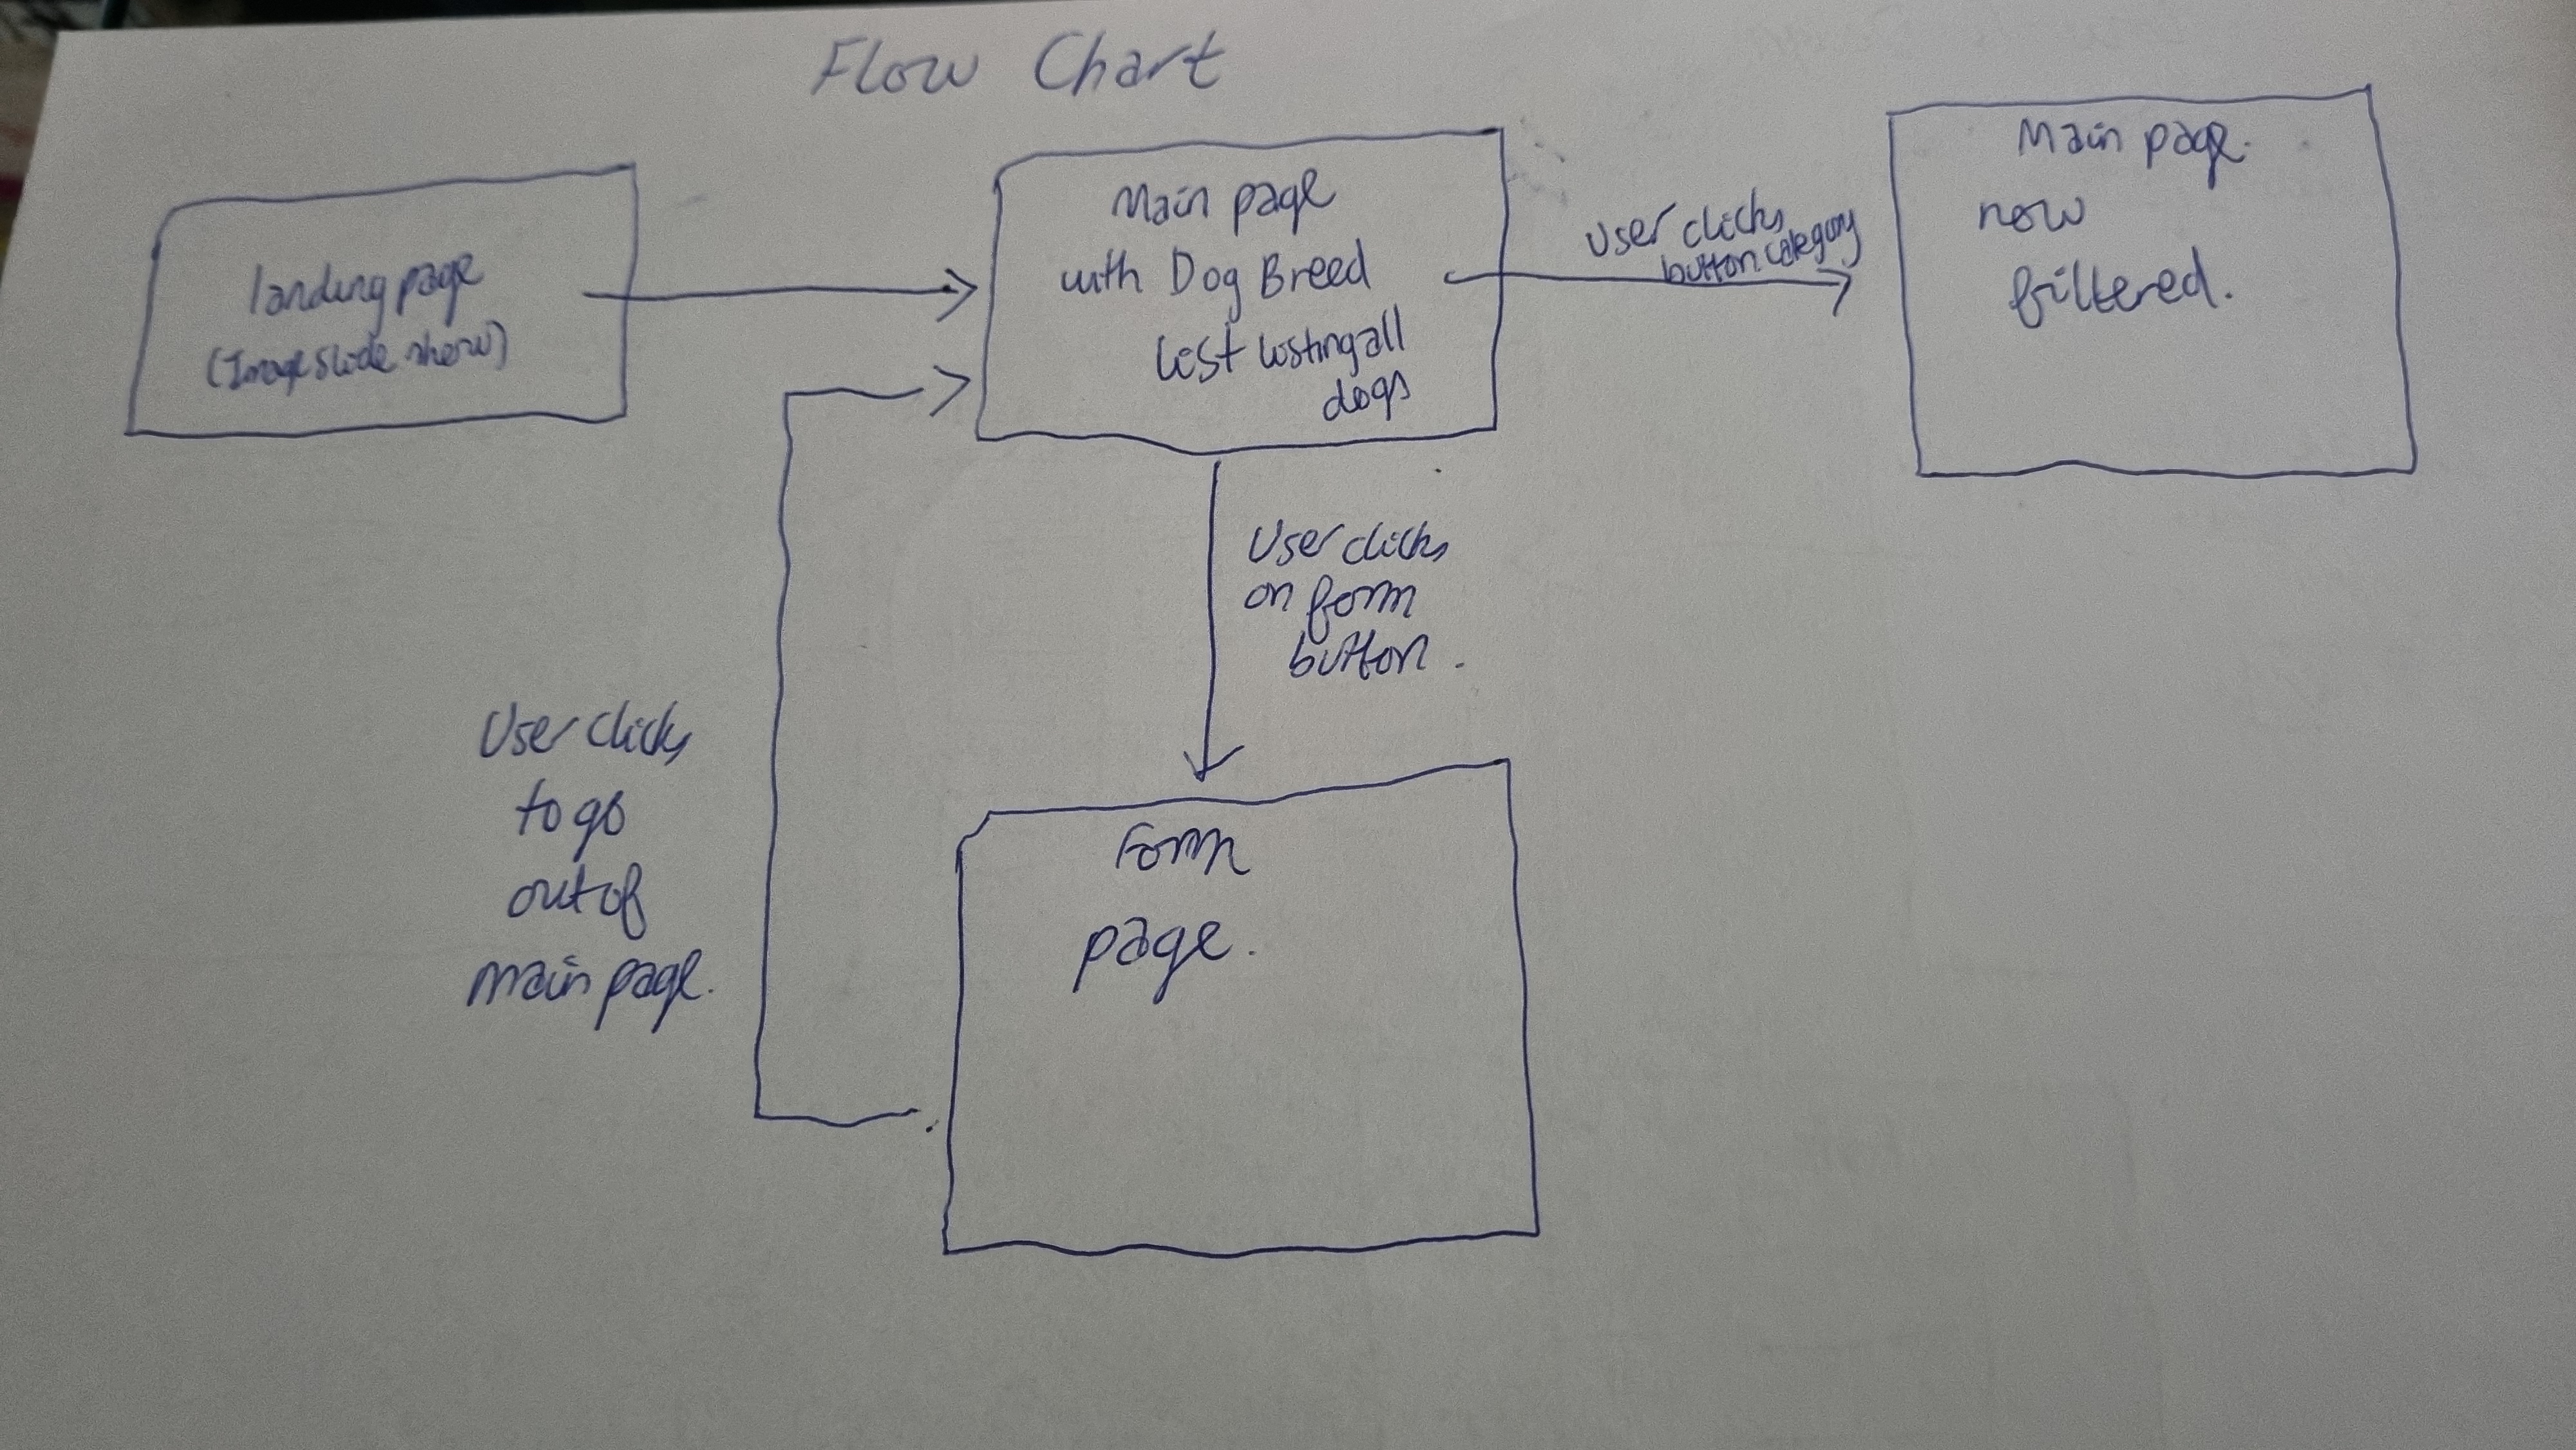 Flow Chart
landing page
(Image slide show)
Main page
with Dog Breed
list listing all
dogs
User clicks
button category
Main page.
now
filtered.
User clicks
on form
button.
User clicks
to go
out of
main page.
Form
page.